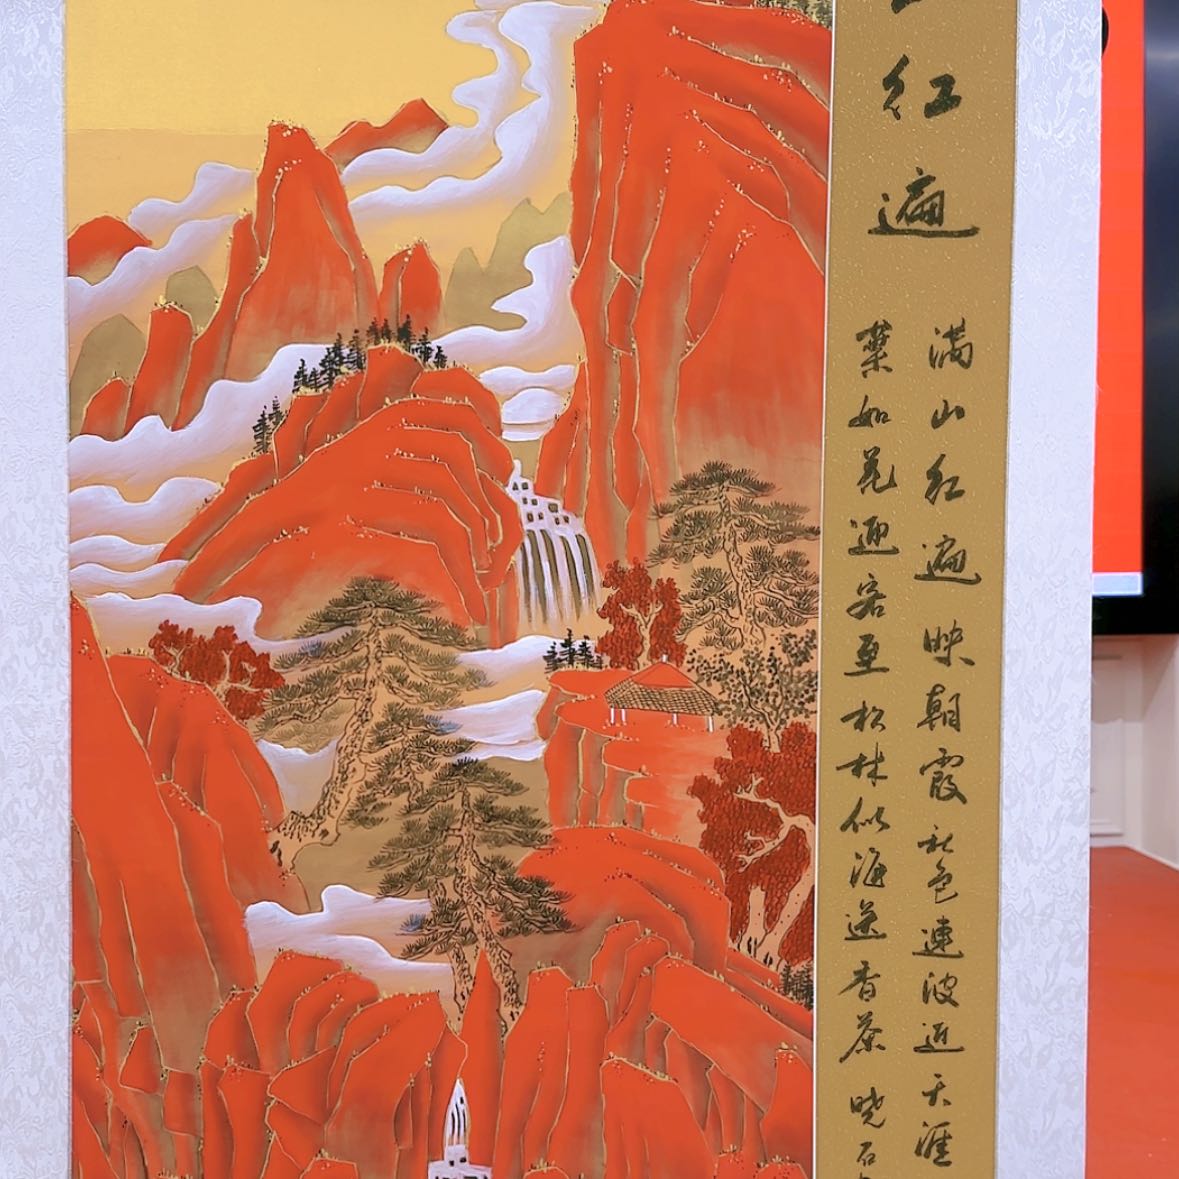 红遍
满山红遍映朝霞秋色连波近天涯
叶如花迎客至松林似海送香茶 晓石